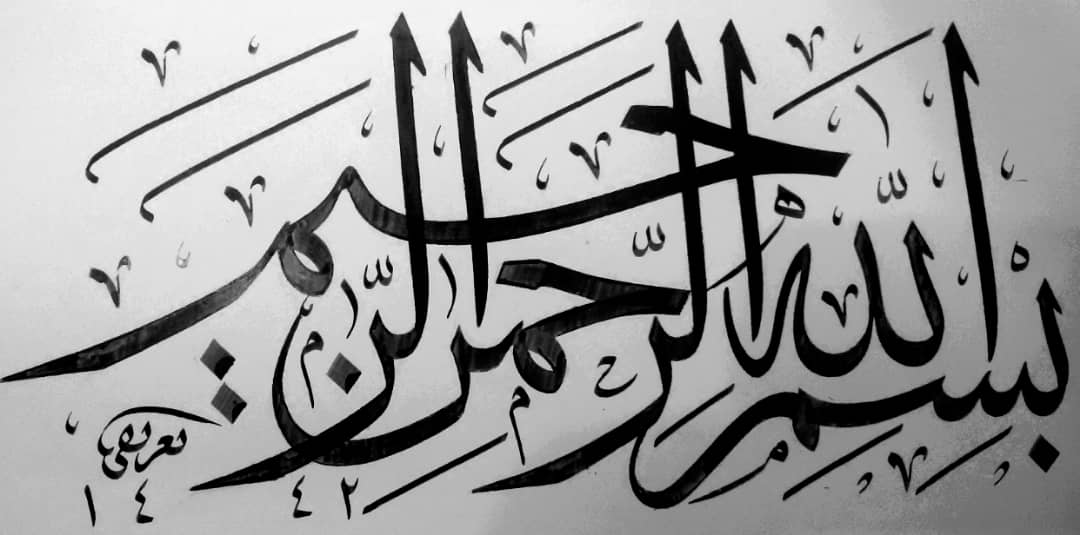 بِسْمِ اللّٰهِ الرَّحْمٰنِ الرَّحِيمِ
١٤٤٢